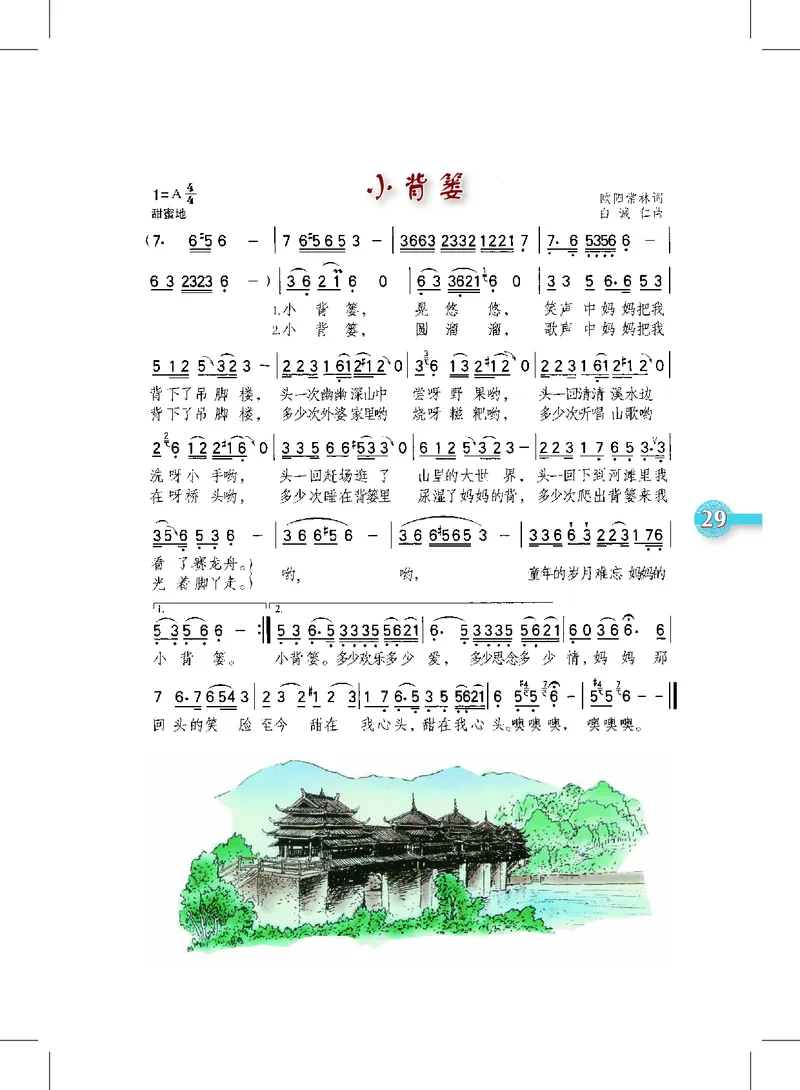 小背篓
1=A 4/4
欧阳常林词
甜蜜地
白诚仁曲
(7· 6#56 － | 7 6#5653 － | 3663 2332 1221 7 | 7· 6 5356 6 －
6 3 2323 6 － ) | 3 6 2 1 6 0 | 6 3 3621 6 0 | 3 3 5 6·6 5 3 |
1.小 背 篓， 晃 悠 悠， 笑声 中 妈 妈把我
2.小 背 篓， 圆 溜 溜， 歌声 中 妈 妈把我
5 1 2 5 3 2 3 － | 2 2 3 1 6 1 2 #1 2 0 | 3 6 1 3 2 #1 2 0 | 2 2 3 1 6 1 2 #1 2 0 |
背下了吊 脚 楼， 头一次幽幽深山中 尝呀 野 果哟， 头一回清清 溪水边
背下了吊 脚 楼， 多少次外婆家里哟 烧呀 糍 粑哟， 多少次听唱 山歌哟
2 6 1 2 2 #1 6 0 | 3 3 5 6 6 #5 3 3 0 | 6 1 2 5 3 2 3 － | 2 2 3 1 7 6 5 3·3 |
洗 呀 小 手哟， 头一回赶场逛 了 山里的大世 界， 头一回下到河滩里我
在 呀 桥 头哟， 多少次睡在背篓里 尿湿了妈妈的背， 多少次爬出背篓来我
3 5 6 5 3 6 － | 3 6 6 #5 6 － | 3 6 6#565 3 － | 3 3 6 6 3 2 2 3 1 7 6 |
看 了赛龙舟。}
光 着脚丫走。} 哟， 哟， 童年的岁月难忘 妈妈的
1. 2.
5 3 5 6 6 － :‖ 5 3 6·5 3 3 3 5 5 6 2 1 | 6· 5 3 3 3 5 5 6 2 1 | 6 0 3 6 6· 6 |
小 背 篓。 小背篓。多少欢乐多少 爱， 多少思念多 少 情，妈 妈 那
7 6·7 6 5 4 3 | 2 3 2 #1 2 3 | 1 7 6·5 3 5 5 6 2 1 | 6 5 5 6 － | 5 5 6 － － ‖
回 头的笑 脸 至今 甜在 我心头，甜在我心 头。噢噢噢， 噢噢噢。
29